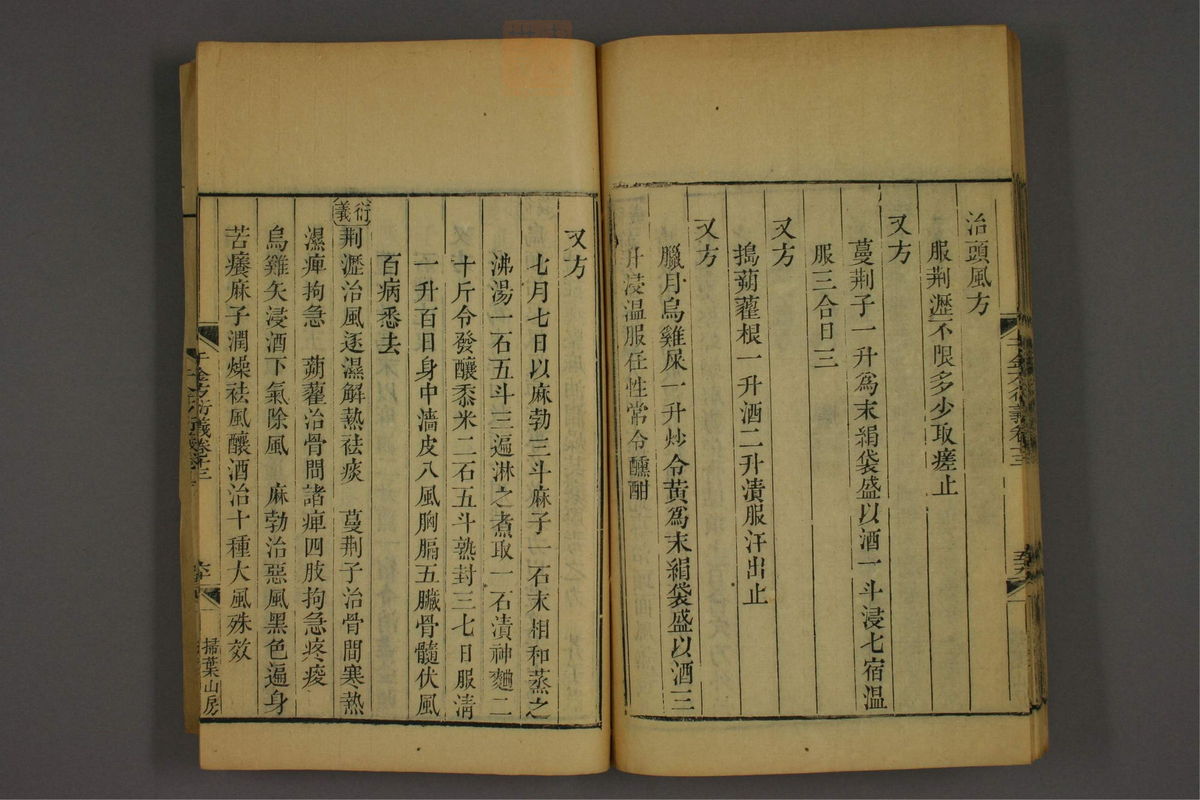 治頭風方
服荆瀝不限多少取瘥止
又方
蔓荆子一升爲末絹袋盛以酒一斗浸七宿温
服三合日三
又方
搗蒴藋根一升酒二升漬服汗出止
又方
臘月烏雞屎一升炒令黄爲末絹袋盛以酒三
升浸温服任性常令醺酣
又方
七月七日以麻勃三斗麻子一石末相和蒸之
沸湯一石五斗三遍淋之煮取一石漬神麯二
十斤令發釀黍米二石五斗熟封三七日服淸
一升百日身中濇皮八風胸膈五臟骨髓伏風
百病悉去
衍義
荆瀝治風逐濕解熱祛痰 蔓荆子治骨間寒熱
濕痺拘急 蒴藋治骨間諸痺四肢拘急疼痠
烏雞矢浸酒下氣除風 麻勃治惡風黑色遍身
苦癢麻子潤燥祛風釀酒治十種大風殊效
千金方衍義卷十三
掃葉山房